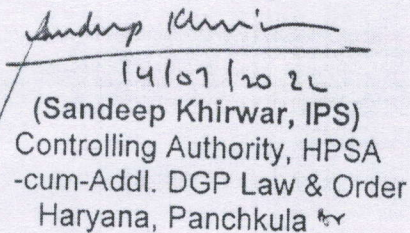 Sandeep Khirwar
14/07/2022
(Sandeep Khirwar, IPS)
Controlling Authority, HPSA
-cum-Addl. DGP Law & Order
Haryana, Panchkula